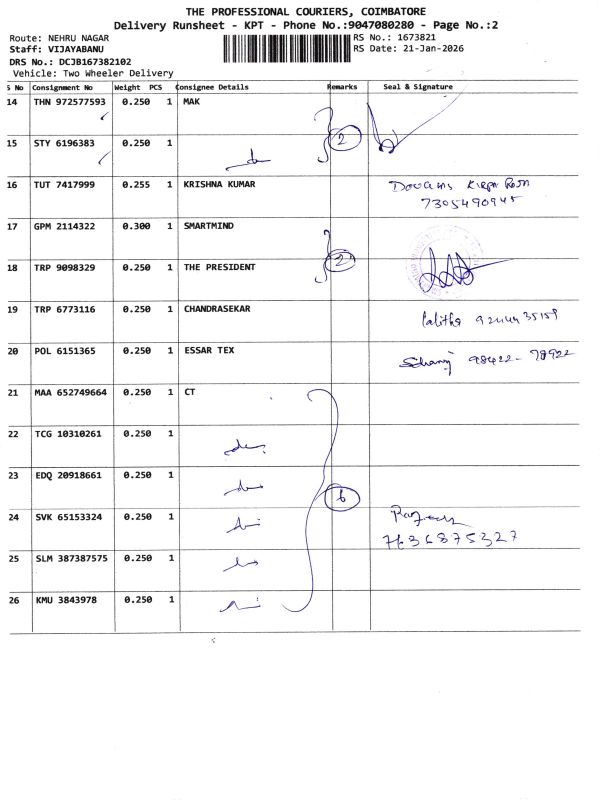 THE PROFESSIONAL COURIERS, COIMBATORE
Delivery Runsheet - KPT - Phone No.:9047080280 - Page No.:2
Route: NEHRU NAGAR RS No.: 1673821
Staff: VIJAYABANU RS Date: 21-Jan-2026
DRS No.: DCJB167382102
Vehicle: Two Wheeler Delivery
S No Consignment No Weight PCS Consignee Details Remarks Seal & Signature
14 THN 972577593 0.250 1 MAK
2
15 STY 6196383 0.250 1
16 TUT 7417999 0.255 1 KRISHNA KUMAR
7305490945
17 GPM 2114322 0.300 1 SMARTMIND
2
18 TRP 9098329 0.250 1 THE PRESIDENT
19 TRP 6773116 0.250 1 CHANDRASEKAR
Lalitha
20 POL 6151365 0.250 1 ESSAR TEX
98422-78922
21 MAA 652749664 0.250 1 CT
22 TCG 10310261 0.250 1
23 EDQ 20918661 0.250 1
6
24 SVK 65153324 0.250 1
7636875327
25 SLM 387387575 0.250 1
26 KMU 3843978 0.250 1